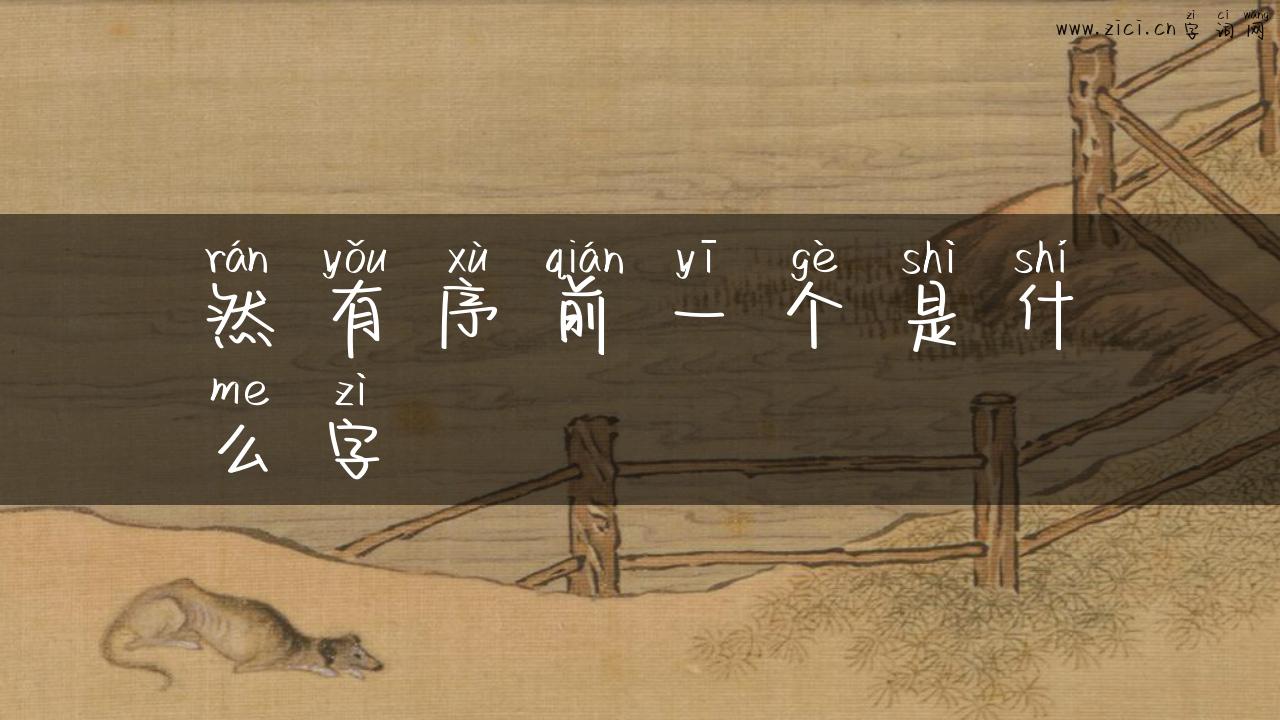 zì cí wǎng
www.zici.cn 字词网
rán yǒu xù qián yī gè shì shí
然有序前一个是什
me zì
么字